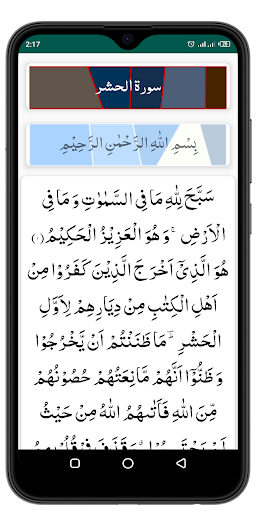 2:17
سورة الحشر
بِسْمِ اللهِ الرَّحْمٰنِ الرَّحِيْمِ
سَبَّحَ لِلّٰهِ مَا فِى السَّمٰوٰتِ وَ مَا فِى
الْاَرْضِ ۚ وَ هُوَ الْعَزِيْزُ الْحَكِيْمُ ﴿۱﴾
هُوَ الَّذِيْۤ اَخْرَجَ الَّذِيْنَ كَفَرُوْا مِنْ
اَهْلِ الْكِتٰبِ مِنْ دِيَارِهِمْ لِاَوَّلِ
الْحَشْرِ ؔؕ مَا ظَنَنْتُمْ اَنْ يَّخْرُجُوْا
وَ ظَنُّوْۤا اَنَّهُمْ مَّانِعَتُهُمْ حُصُوْنُهُمْ
مِّنَ اللهِ فَاَتٰىهُمُ اللهُ مِنْ حَيْثُ